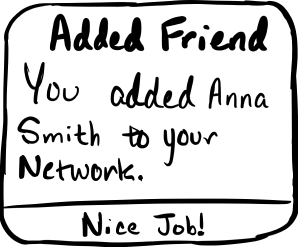 Added Friend
You added Anna
Smith to your
Network.
Nice Job!